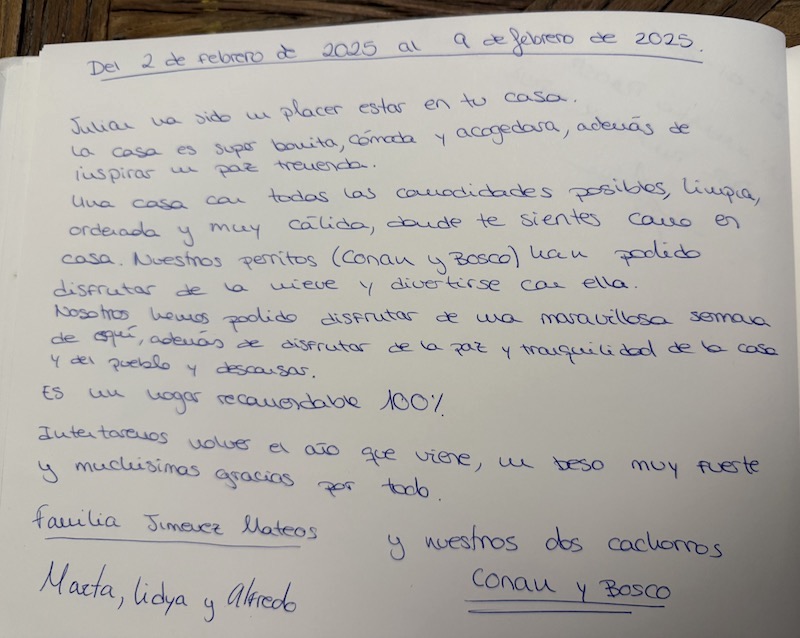 Del 2 de febrero de 2025 al 9 de febrero de 2025.
Julian ha sido un placer estar en tu casa.
La casa es super bonita, cómoda y acogedora, además de
inspirar un paz tremenda.
Una casa con todas las comodidades posibles, limpia,
ordenada y muy cálida, donde te sientes como en
casa. Nuestros perritos (Conan y Bosco) han podido
disfrutar de la nieve y divertirse con ella.
Nosotros hemos podido disfrutar de una maravillosa semana
de esquí, además de disfrutar de la paz y tranquilidad de la casa
y del pueblo y descansar.
Es un hogar recomendable 100%
Intentaremos volver el año que viene, un beso muy fuerte
y muchisimas gracias por todo.
Familia Jimenez Mateos
y nuestros dos cachorros
Conan y Bosco
Marta, Lidya y Alfredo